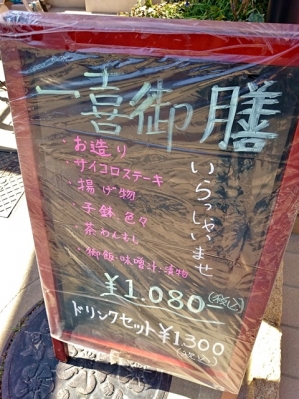 一喜御膳
いらっしゃいませ
・お造り
・サイコロステーキ
・揚げ物
・子鉢色々
・茶わんむし
・御飯・味噌汁・漬物
¥1.080-(税込)
ドリンクセット¥1300
(税込)